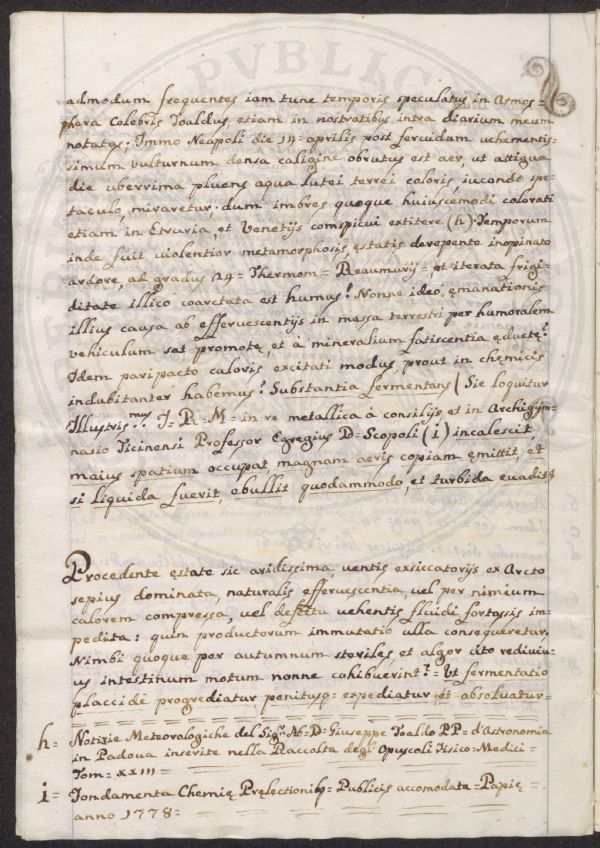 admodum frequentes iam tunc temporis speculatus in Atmos=
phæra Celebris Toaldus, etiam in nostratibus intra diarium meum
notatas: Immo Neapoli die 14= aprilis post feruidum uehementis=
simum vulturnum densa caligine obrutus est aer, ut attigua
die uberrima pluens aqua lutei terrei coloris, iucundo spe=
taculo, miraretur; dum imbres quoque huiuscemodi colorati
etiam in Etruria, et Venetijs comspicui extitere (h). Temporum
inde fuit uiolentior metamorphosis, estatis derepente inopinato
ardore, ad gradus 24= Thermom= Reaumurij= et iterata frigi=
ditate illico coarctata est humus! Nonne ideo ęmanationis
illius causa ab efferuescentijs in massa terrestri per humoralem
vehiculum sat promotę, et à mineralium fatiscentia eductę?
Idem pari pacto caloris excitati modus, prout in chęmicis
indubitanter habemus? Substantia fermentans (Sic loquitur
Illustris.mus I= R= M= in re metallica à consilijs, et in Archigÿm=
nasio Ticinensi Professor Egregius D= Scopoli (i) incalescit
maius spatium occupat, magnam aeris copiam ęmittit, et
si liquida fuerit, ebullit quodammodo, et turbida euadit=
Procedente ęstate sic aridissima, uentis exsiccatorijs ex Arcto
sepius dominata, naturalis efferuescentia, uel per nimium
calorem compressa, uel defectu uehentis fluidi fortassis im=
pedita: quin productorum immutatio ulla consequeretur.
Nimbi quoque per autumnum steriles, et algor cito rediuiu=
us intestinum motum nonne cohibuerint?= Ut fermentatio
placcidè progrediatur penitusq= expediatur, et absoluatur=
h= Notizie Meteorologiche del Sigr. Ab= D= Giuseppe Toaldo PP= d'Astronomia
in Padova inserite nella Raccolta degl'Opuscoli Fisico=Medici=
Tom= XXIII=
i= Fondamenta Chemię Pręlectionibq= Publicis accomodata= Papię=
anno 1778=